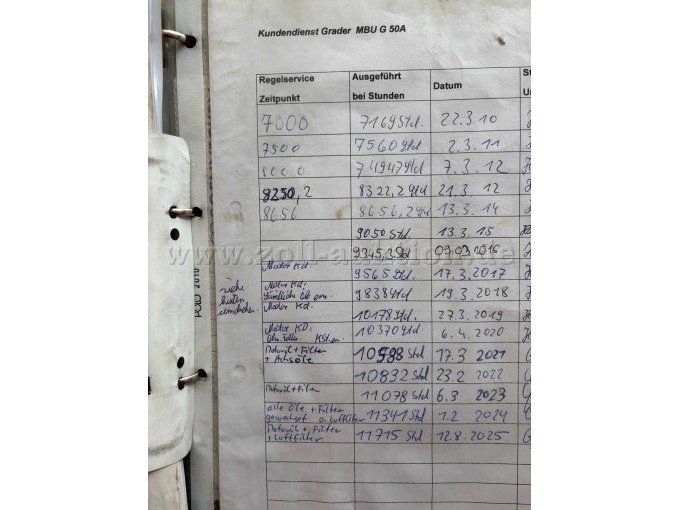 Kundendienst Grader MBU G 50A
Regelservice Zeitpunkt Ausgeführt bei Stunden Datum
7000 7169 Std. 22.3.10
7500 7560 Std 2.3.11
8000 7494 Std. 7.3.12
8250,2 8322,2 Std 21.3.12
8656 8656,2 Std 13.3.14
9050 Std. 13.3.15
9345,2 Std 09.03.2016
Motor Kd. 9565 Std. 17.3.2017
Motor Kd.
9838 Std 19.3.2018
Motor Kd. 10178 Std. 27.3.2019
siehe
hinten
Motor KD. 10370 Std 6.4.2020
Motoröl + Filter
+ Achsöle 10588 Std 17.3 2021
10832 Std 23.2 2022
Motoröl + Filter 11078 Std 6.3 2023
alle Öle + Filter
gewechselt o. Luftfilter 11341 Std 1.2 2024
Motoröl + Filter
+ Luftfilter 11715 Std 12.8.2025
www.zoll-auktion.de
POLO 2010